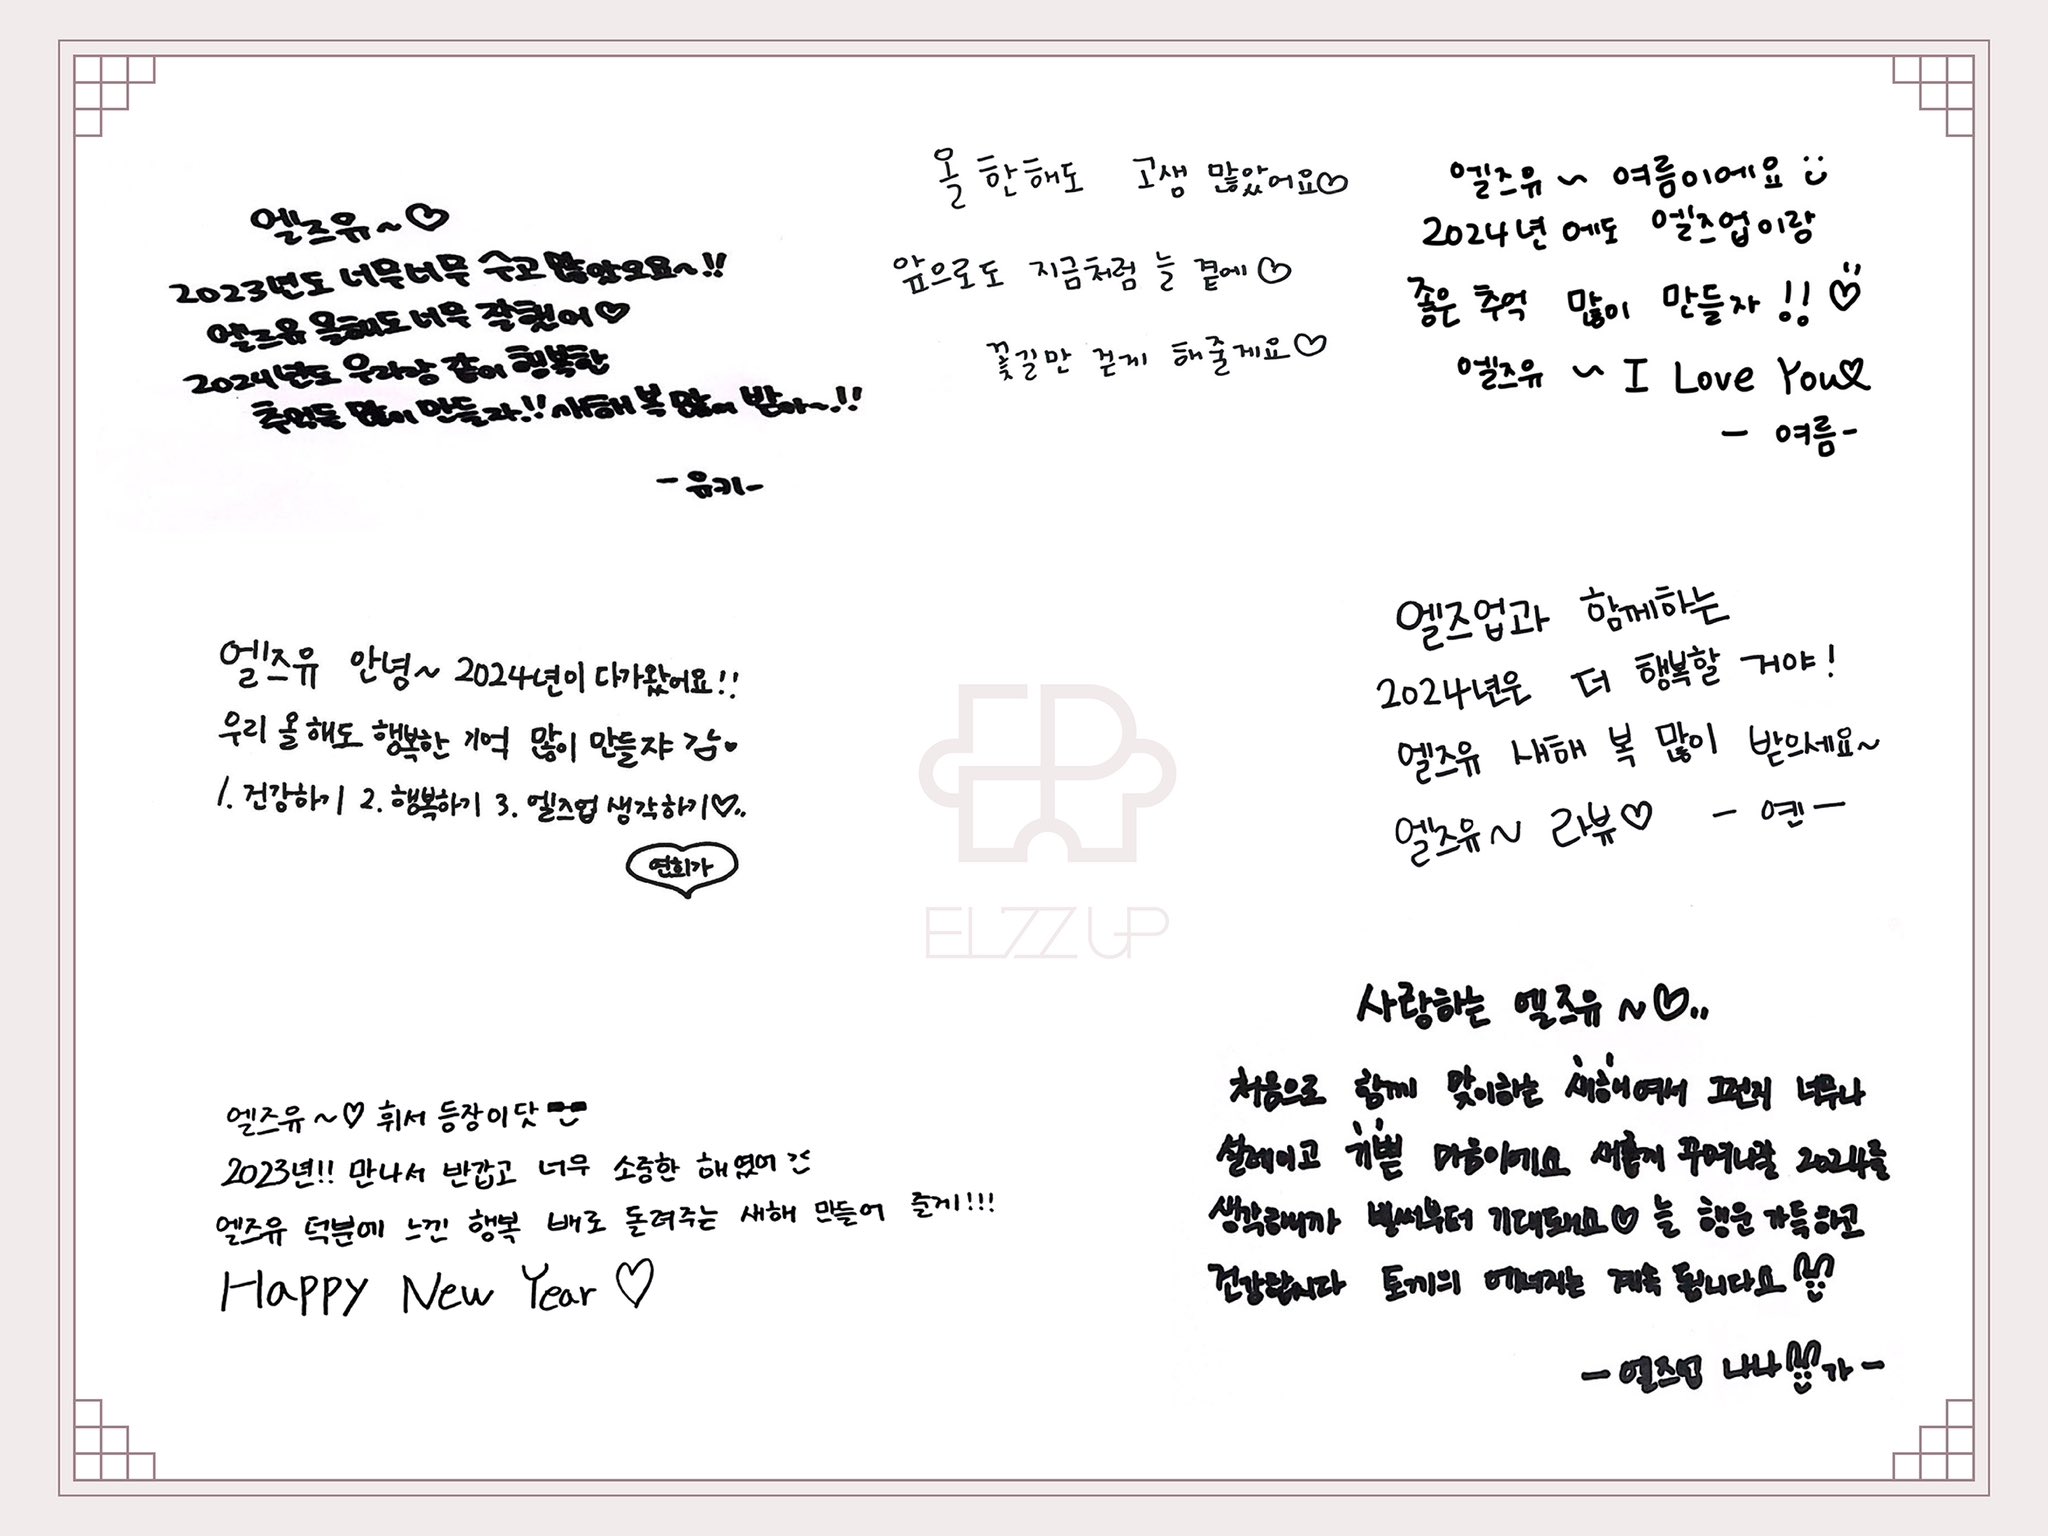 엘즈유~♡
2023년도 너무너무 수고 많았오요~!!
엘즈유 올해도 너무 잘했어♡
2024년도 우리랑 같이 행복한
추억들 많이 만들자!! 새해 복 많이 받아~!!
- 유키-
올 한해도 고생 많았어요♡
앞으로도 지금처럼 늘 곁에♡
꽃길만 걷게 해줄게요♡
엘즈유~ 여름이에요
2024년에도 엘즈업이랑
좋은 추억 많이 만들자!!♡
엘즈유~ I Love You♡
- 여름-
엘즈유 안녕~ 2024년이 다가왔어요!!
우리 올해도 행복한 기억 많이 만들쟈
1. 건강하기 2. 행복하기 3. 엘즈업 생각하기♡..
연희가
엘즈업과 함께하는
2024년은 더 행복할 거야!
엘즈유 새해 복 많이 받으세요~
엘즈유~ 라뷰♡ - 옌 -
엘즈유~♡ 휘서 등장이닷
2023년!! 만나서 반갑고 너무 소중한 해였어
엘즈유 덕분에 느낀 행복 배로 돌려주는 새해 만들어 줄게!!!
Happy New Year♡
사랑하는 엘즈유~♡..
처음으로 함께 맞이하는 새해여서 그런지 너무나
설레이고 기쁜 마음이에요 새롭게 꾸며나갈 2024를
생각하니까 벌써부터 기대돼요♡ 늘 행운 가득하고
건강합시다 토끼의 에너지는 계속 됩니다요
- 엘즈업 나나가 -
ELZZUP